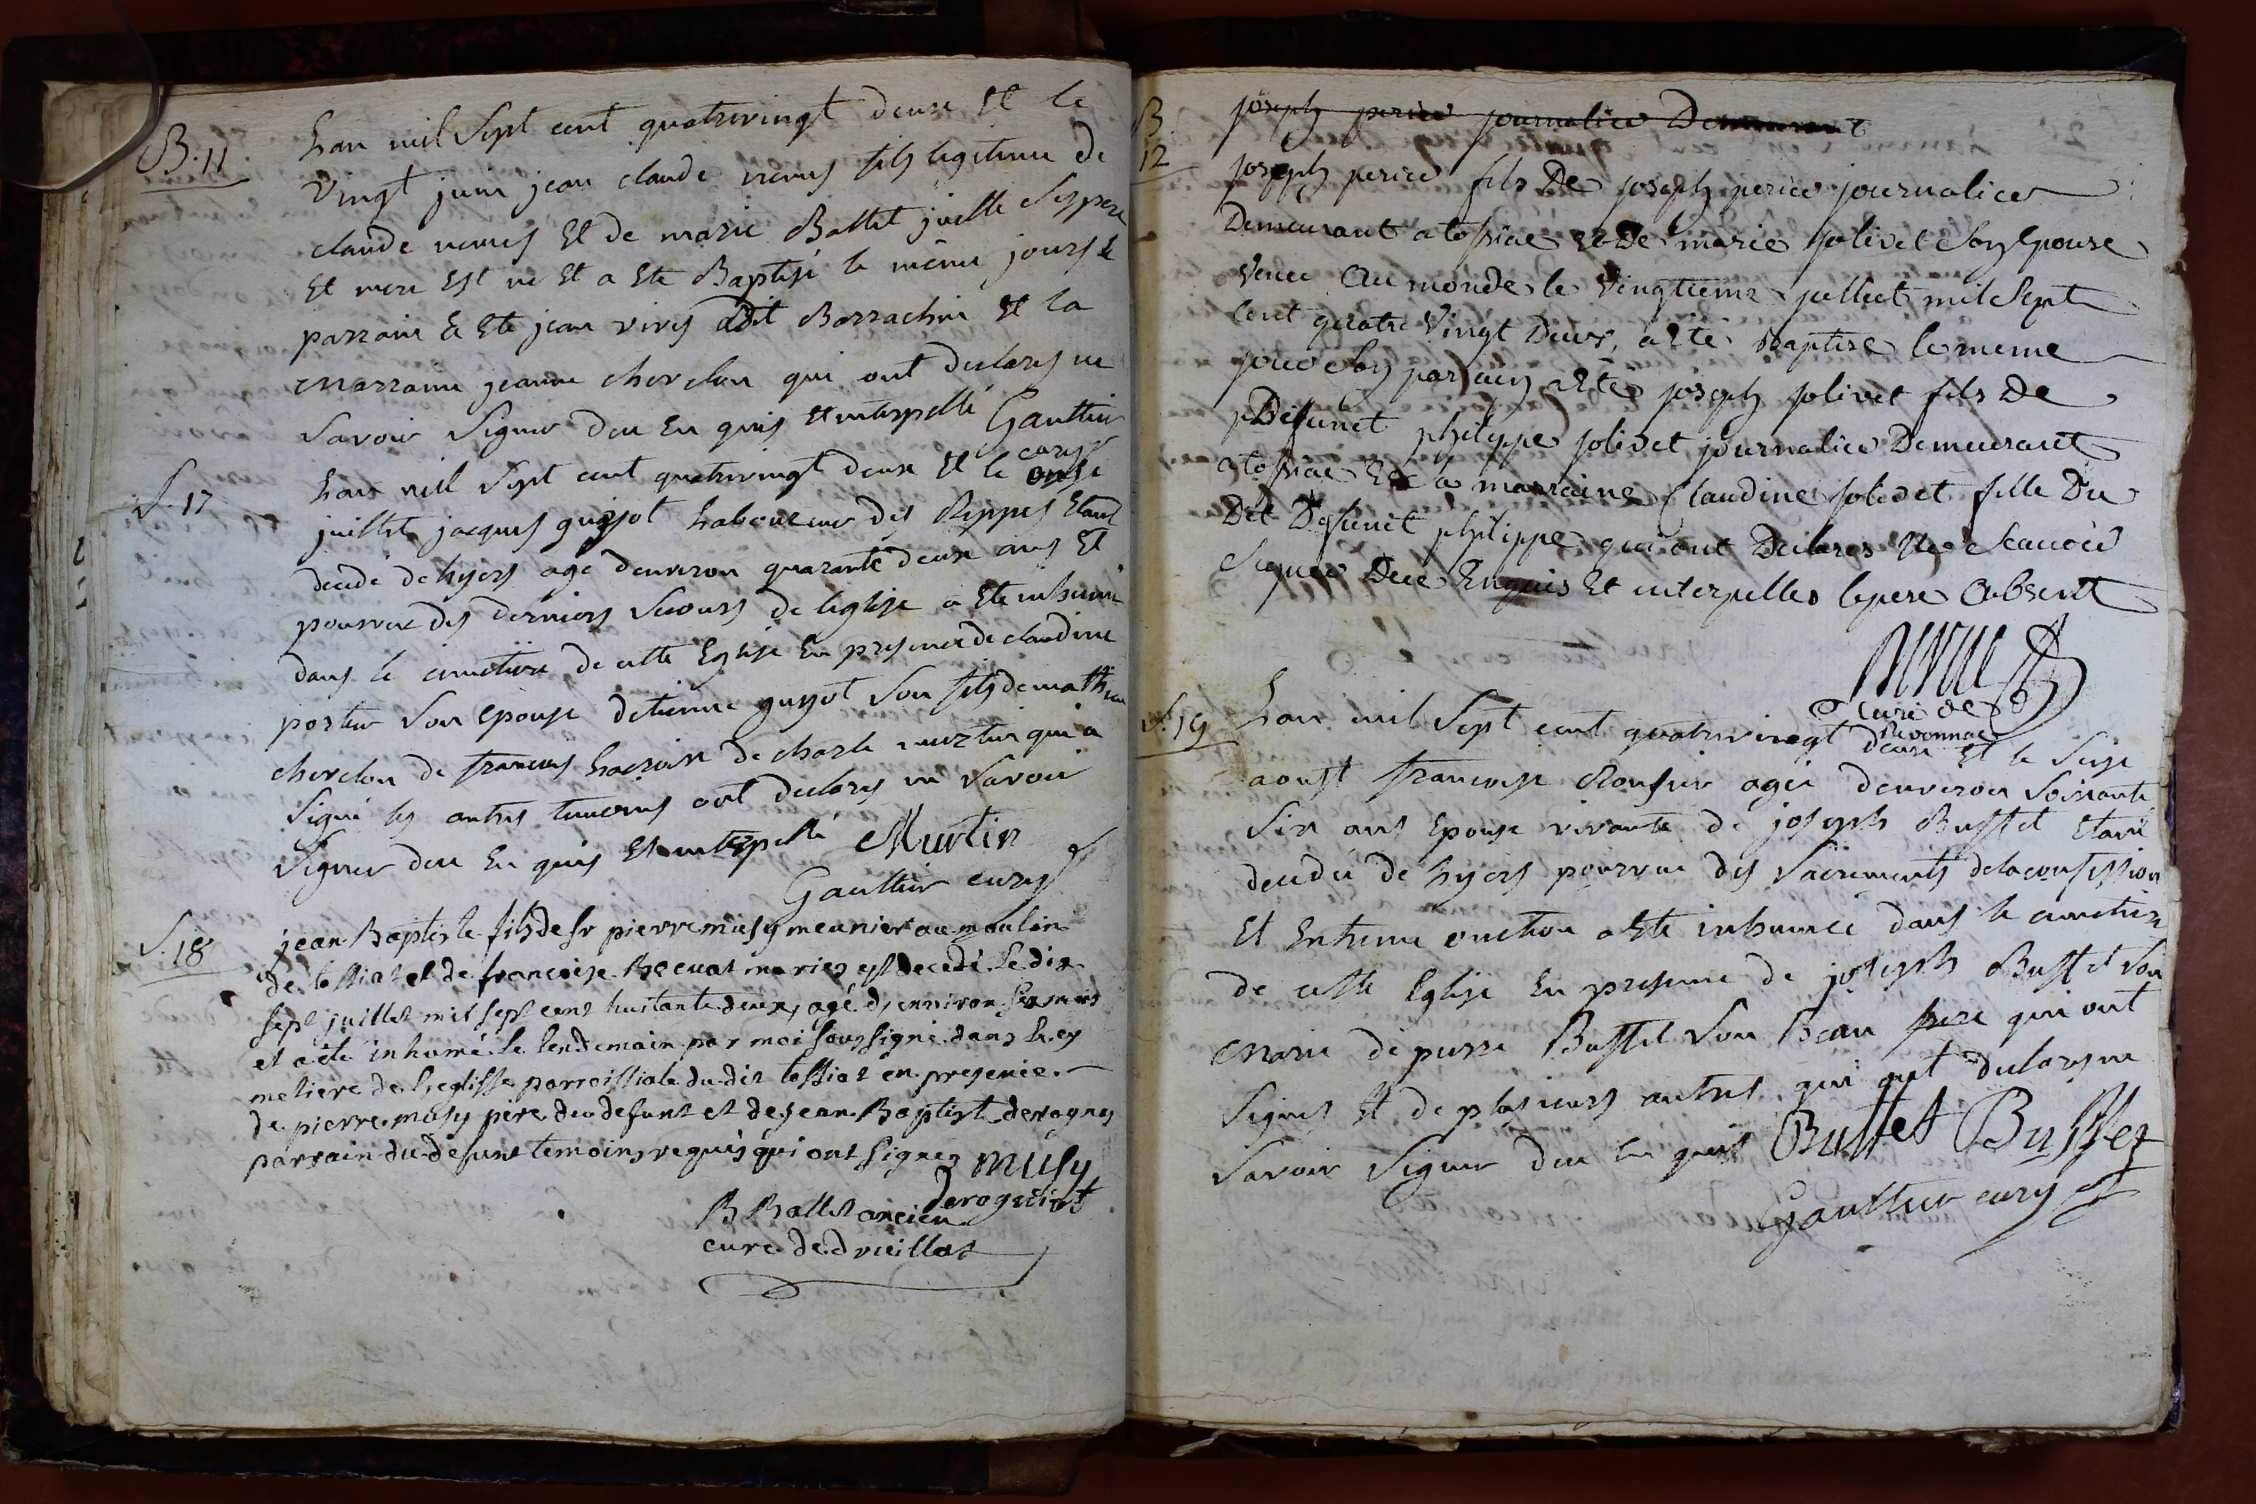 B. 11
Lan mil Sept cent quatrevingt deux Et le
vingt juin jean claude fils legitime de
claude Et de marie Ballet juelle Ses pere
Et mere Est né Et a Ete Baptisé le même jours Le
parrain a Ete jean vivey dit Borrachin Et la
Marraine jeanne cherclou qui ont declarés ne
Savoir Signer deu En quis Et interpellé Gauttier
curey
S. 17
Lan mill Sept cent quatrevingt deux Et le onze
juillet jacques guyot Laboureur des Rippes Etant
decedé dehyers agé denviron quarante deux ans Et
pourvue des derniers Secours de leglise a Ete inhumé
dans le cimetiere de cette Eglise En presence de claudine
portier Son epouse detienne guyot Son fils de mathieu
cherclou de francois de charle murtin qui a
Signé les autres temoins ont declarés ne Savoir
Signer deu En quis Et interpellé Murtin
Gauttier curey
S. 18
jean Baptiste fils de Sr pierre musy meunier au moulin
de lossiat et de francoise mariez est decedé Le dix
sept juillet mil sept cent huitante deux, agé d'environ six mois
et a ete inhumé le lendemain par moi soussigné dans le cy
metiere de L'eglisse parroissiale du dit lossiat en presence
de pierre musy pere du defunt et de jean Baptist derognat
parrain du defunt temoins requis qui ont signez musy
Deroguiat
B Ballet ancien
cure de druillat
B.
12
joseph perier journalier Demeurant
joseph perier fils De joseph perier journalier
Demeurant a tossiac et De marie jolivet Son Epouse
Venu au monde le vingtieme juillet mil Sept
Cent quatre Vingt Deux, a Eté Baptise le meme
jour Son parrain a Eté joseph jolivet fils De
Defunct philippe jolivet journalier Demeurant
a tossiac Et la marraine Claudine jolivet fille Du
Dit Defunct philippe qui ont Declarés Ne Scauoir
Signer Deue Enquis Et interpelles lepere absent
Curé de
Revonnas
S. 19
Lan mil Sept cent quatrevingt deux Et le Seize
aoust francoise agée denviron Soixante
Six ans Epouse vivante de joseph Buffet Etant
decedée de hyers pourvue des Sacrements delaconfession
Et Extreme onction a Ete inhumée dans le cimetiere
de cette Eglise En presence de joseph Buffet Son
Marie de pierre Buffet Son Beau frere qui ont
Signés Et de plusieurs autres qui ont declarés ne
Savoir Signer deu En quis Buffet Buffet
Gauttier curey